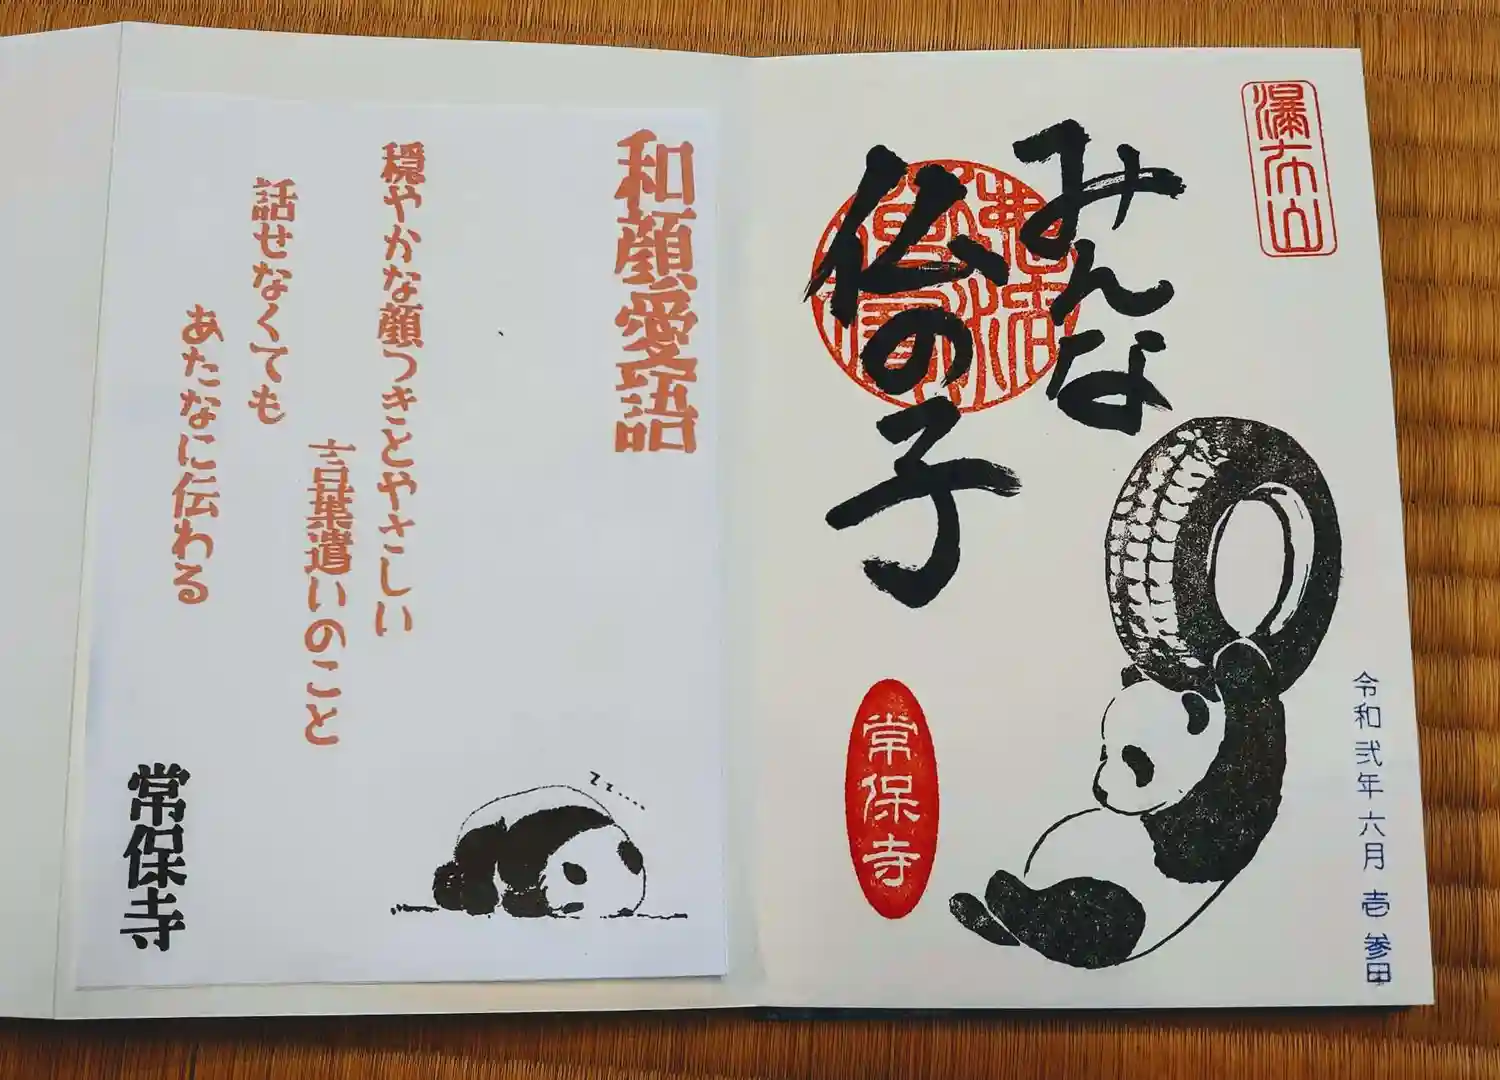 瀑布山
みんな
仏の子
常保寺
令和弐年六月壱参日
和顔愛語
穏やかな顔つきとやさしい
言葉遣いのこと
話せなくても
あたなに伝わる
常保寺
zz....